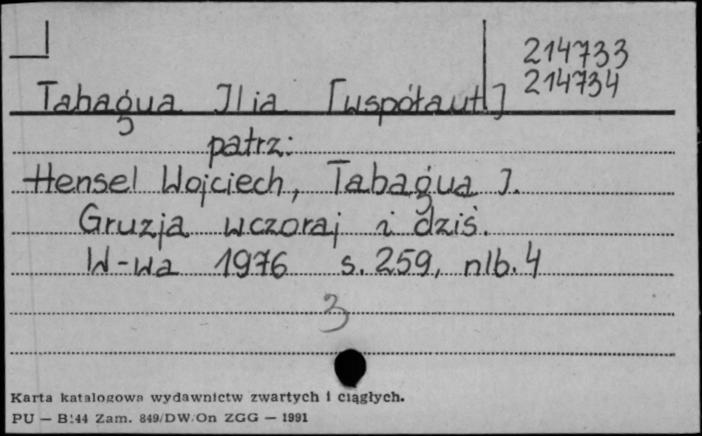 214733
214734
Tabagua Ilia [współaut]
patrz:
Hensel Wojciech, Tabagua I.
Gruzja wczoraj i dziś.
W-wa 1976 s. 259, nlb. 4
3
Karta katalogowa wydawnictw zwartych i ciągłych.
PU — B:44 Zam. 849/DW/On ZGG — 1991